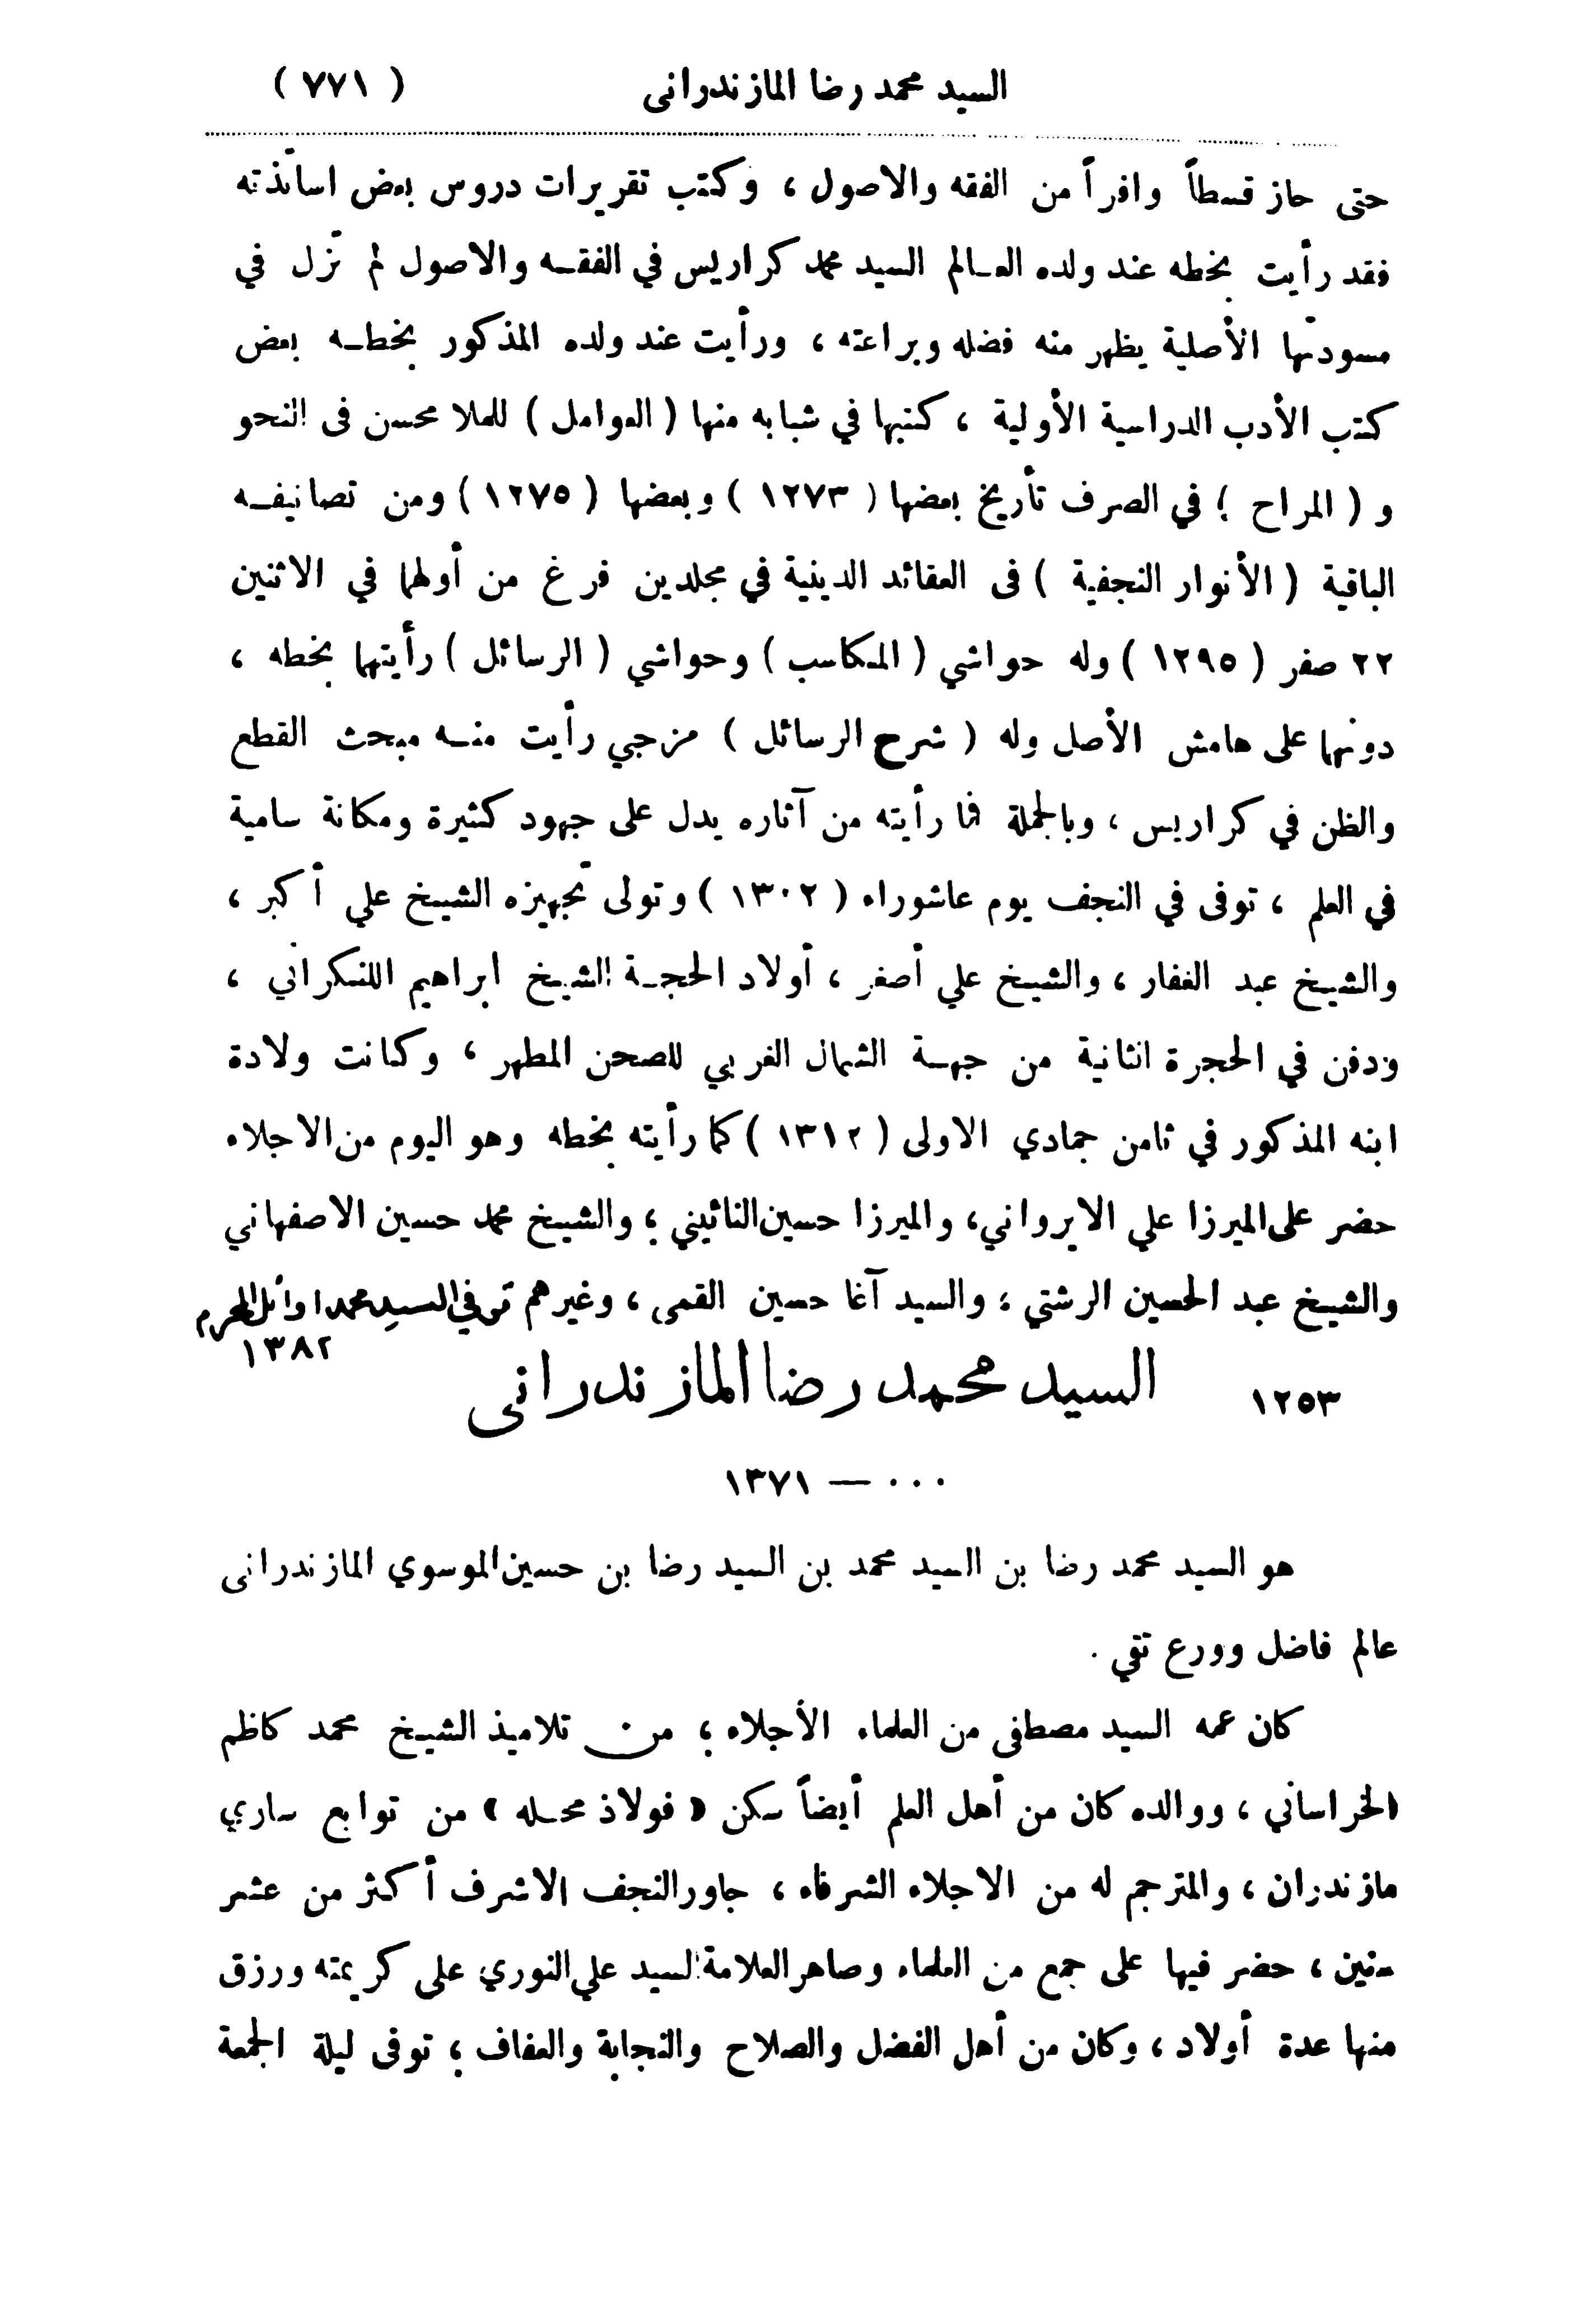 السيد محمد رضا المازندرانى ( ٧٧١ )
حتى حاز قسطاً وافراً من الفقه والاصول ، وكتب تقريرات دروس بعض اساتذته
فقد رأيت بخطه عند ولده العالم السيد محمد كراريس في الفقه والاصول لم تزل في
مسودتها الأصلية يظهر منه فضله وبراعته ، ورأيت عند ولده المذكور بخطه بعض
كتب الأدب الدراسية الأولية ، كتبها في شبابه منها ( العوامل ) للملا محسن فى النحو
و ( المراح ) في الصرف تأريخ بعضها ( ١٢٧٣ ) وبعضها ( ١٢٧٥ ) ومن تصانيفه
الباقية ( الأنوار النجفية ) فى العقائد الدينية في مجلدين فرغ من أولهما في الاثنين
٢٢ صفر ( ١٢٩٥ ) وله حواشي ( المكاسب ) وحواشي ( الرسائل ) رأيتهما بخطه ،
دونهما على هامش الأصل وله ( شرح الرسائل ) مزجي رأيت منه مبحث القطع
والظن في كراريس ، وبالجملة فما رأيته من آثاره يدل على جهود كثيرة ومكانة سامية
في العلم ، توفى في النجف يوم عاشوراء ( ١٣٠٢ ) وتولى تجهيزه الشيخ علي أكبر ،
والشيخ عبد الغفار ، والشيخ علي أصغر ، أولاد الحجة الشيخ ابراهيم اللنكراني ،
ودفن في الحجرة الثانية من جهة الشمال الغربي للصحن المطهر ، وكانت ولادة
ابنه المذكور في ثامن جمادي الاولى ( ١٣١٢ ) كما رأيته بخطه وهو اليوم من الاجلاء
حضر على الميرزا علي الايرواني ، والميرزا حسين النائيني ؛ والشيخ محمد حسين الاصفهاني
والشيخ عبد الحسين الرشتي ؛ والسيد آغا حسين القمى ، وغيرهم توفي السيد محمد اوائل المحرم
١٣٨٢
١٢٥٣ السيد محمد رضا المازندرانى
٠٠٠ — ١٣٧١
هو السيد محمد رضا بن السيد محمد بن السيد رضا بن حسين الموسوي المازندرانى
عالم فاضل وورع تقي .
كان عمه السيد مصطفى من العلماء الأجلاء ؛ من تلاميذ الشيخ محمد كاظم
الخراساني ، ووالده كان من أهل العلم أيضاً سكن « فولاذ محله » من توابع ساري
مازندران ، والمترجم له من الاجلاء الشرفاء ، جاور النجف الاشرف أكثر من عشر
سنين ، حضر فيها على جمع من العلماء وصاهر العلامة السيد علي النوري على كريمته ورزق
منها عدة أولاد ، وكان من أهل الفضل والصلاح والنجابة والعفاف ؛ توفى ليلة الجمعة